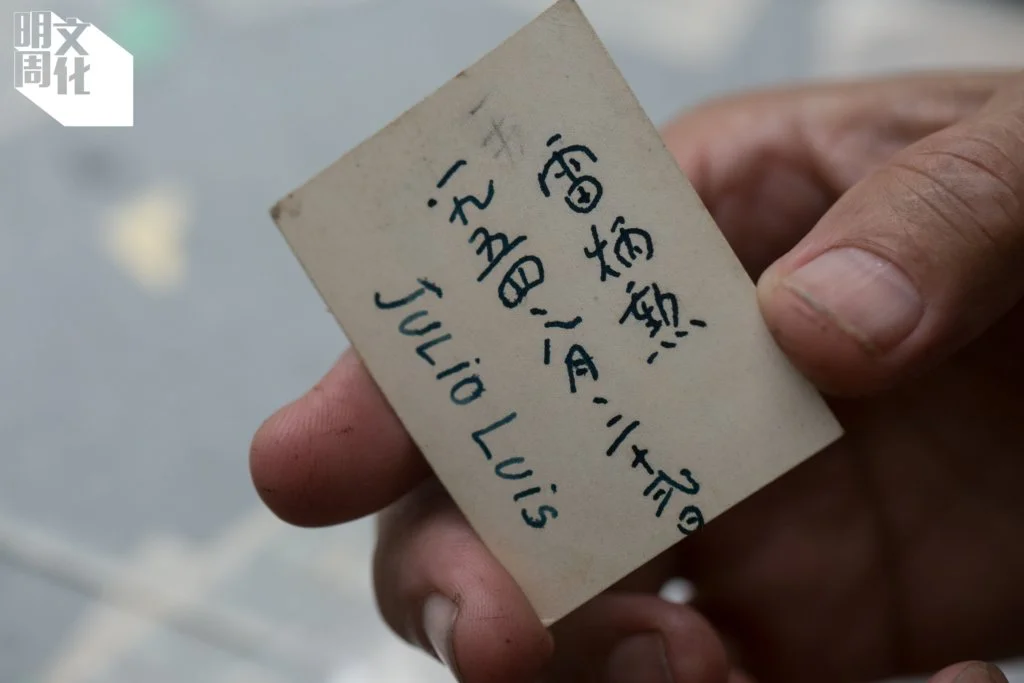 明周文化
雷炳勲
一九五四、八月、二十弍日
JULIO LUiS